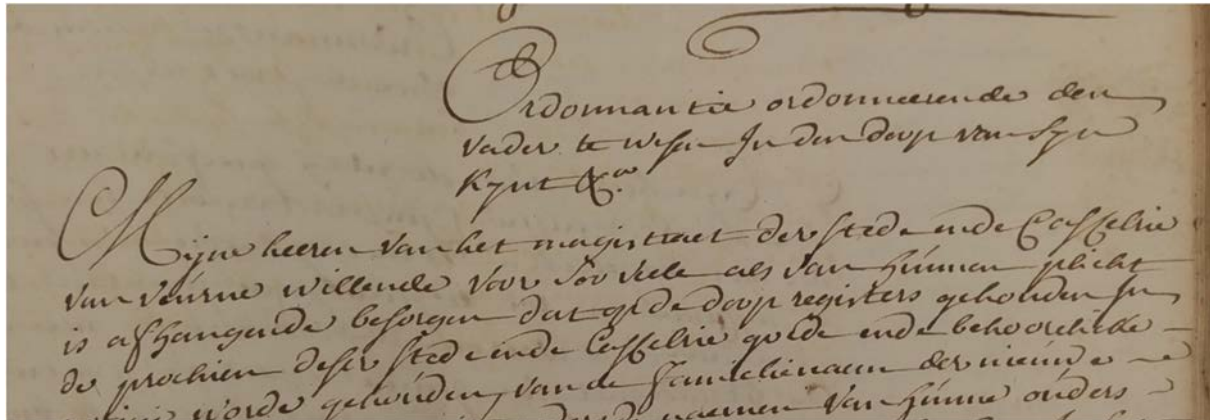 Ordonnantie ordonneerende den
vader te wesen In den doop van syn
Kynt &a
Mijne heeren van het magistraet der stede ende Casselrie
van veurne willende voor soo veele als van hunnen plicht
is afhangende besorgen dat op de doop registers gehouden In
de prochien deser stede ende Casselrie goede ende behoorelicke
worde gehouden, van de familienaem der nieuwe
naemen van hunne ouders